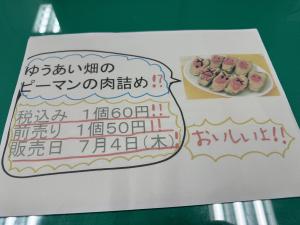 ゆうあい畑の
ピーマンの肉詰め!?
税込み 1個60円!!
前売り 1個50円!!
販売日 7月4日(木)!
おいしいよ!!